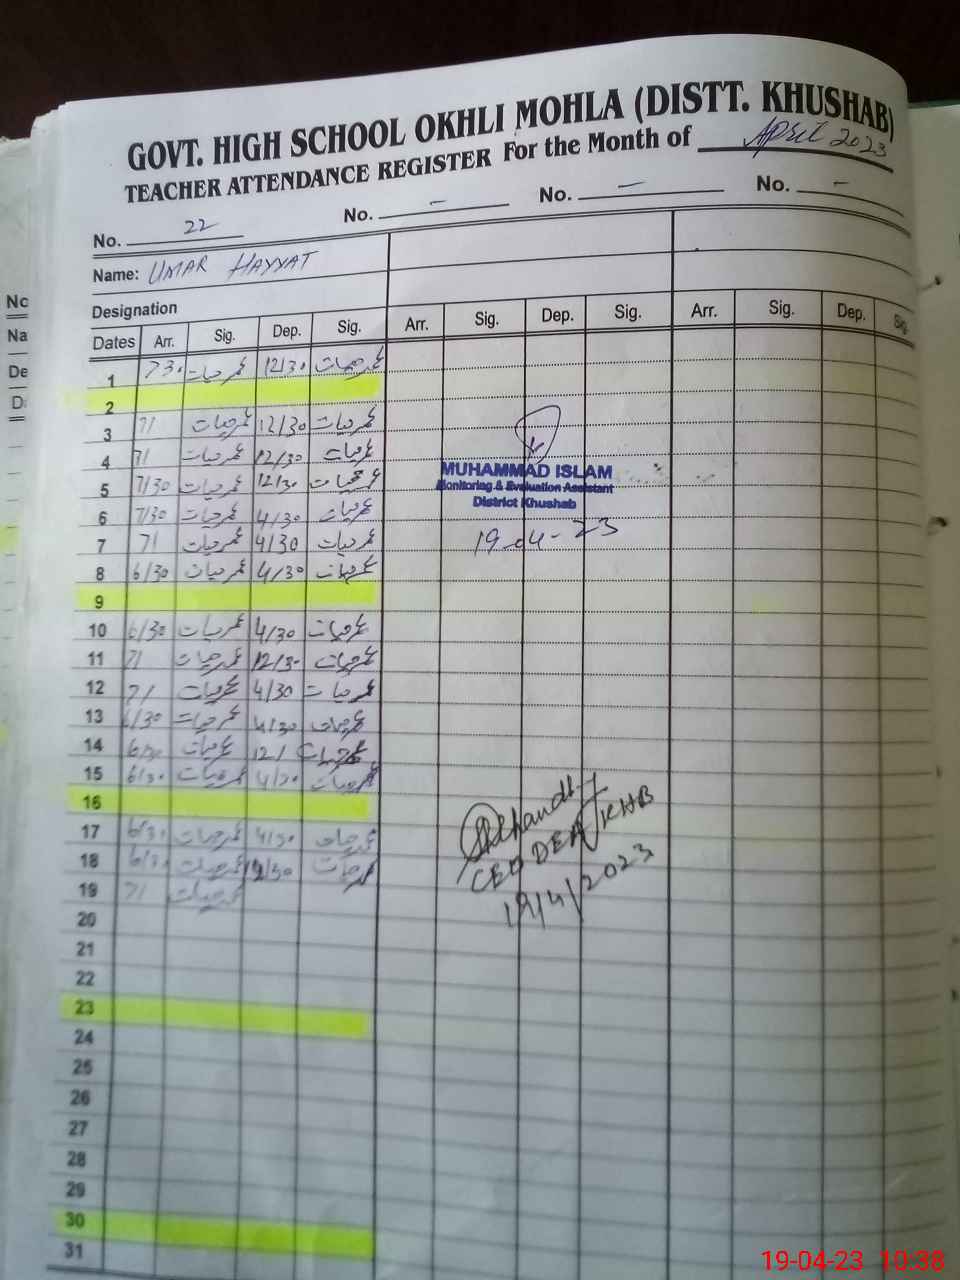 GOVT. HIGH SCHOOL OKHLI MOHLA (DISTT. KHUSHAB)
TEACHER ATTENDANCE REGISTER For the Month of April 2023
No. 22 No. - No. - No. -
Name: UMAR HAYYAT
Designation
Dates Arr. Sig. Dep. Sig. Arr. Sig. Dep. Sig. Arr. Sig. Dep. Sig.
1 730 عمرحیات 12/30 عمرحیات
2
3 7/ عمرحیات 12/30 عمرحیات
4 7/ عمرحیات 12/30 عمرحیات
5 7/30 عمرحیات 12/30 عمرحیات
6 7/30 عمرحیات 4/30 عمرحیات
7 7/ عمرحیات 4/30 عمرحیات
8 6/30 عمرحیات 4/30 عمرحیات
9
10 6/30 عمرحیات 4/30 عمرحیات
11 7/ عمرحیات 12/30 عمرحیات
12 7/ عمرحیات 4/30 عمرحیات
13 6/30 عمرحیات 4/30 عمرحیات
14 6/30 عمرحیات 12/ عمرحیات
15 6/30 عمرحیات 4/30 عمرحیات
16
17 6/30 عمرحیات 4/30 عمرحیات
18 6/30 عمرحیات 12/30 عمرحیات
19 7/ عمرحیات
20
21
22
23
24
25
26
27
28
29
30
31
MUHAMMAD ISLAM
Monitoring & Evaluation Assistant
District Khushab
19-04-23
CEO DEA KHB
19/4/2023
No
Na
De
D
19-04-23 10:38